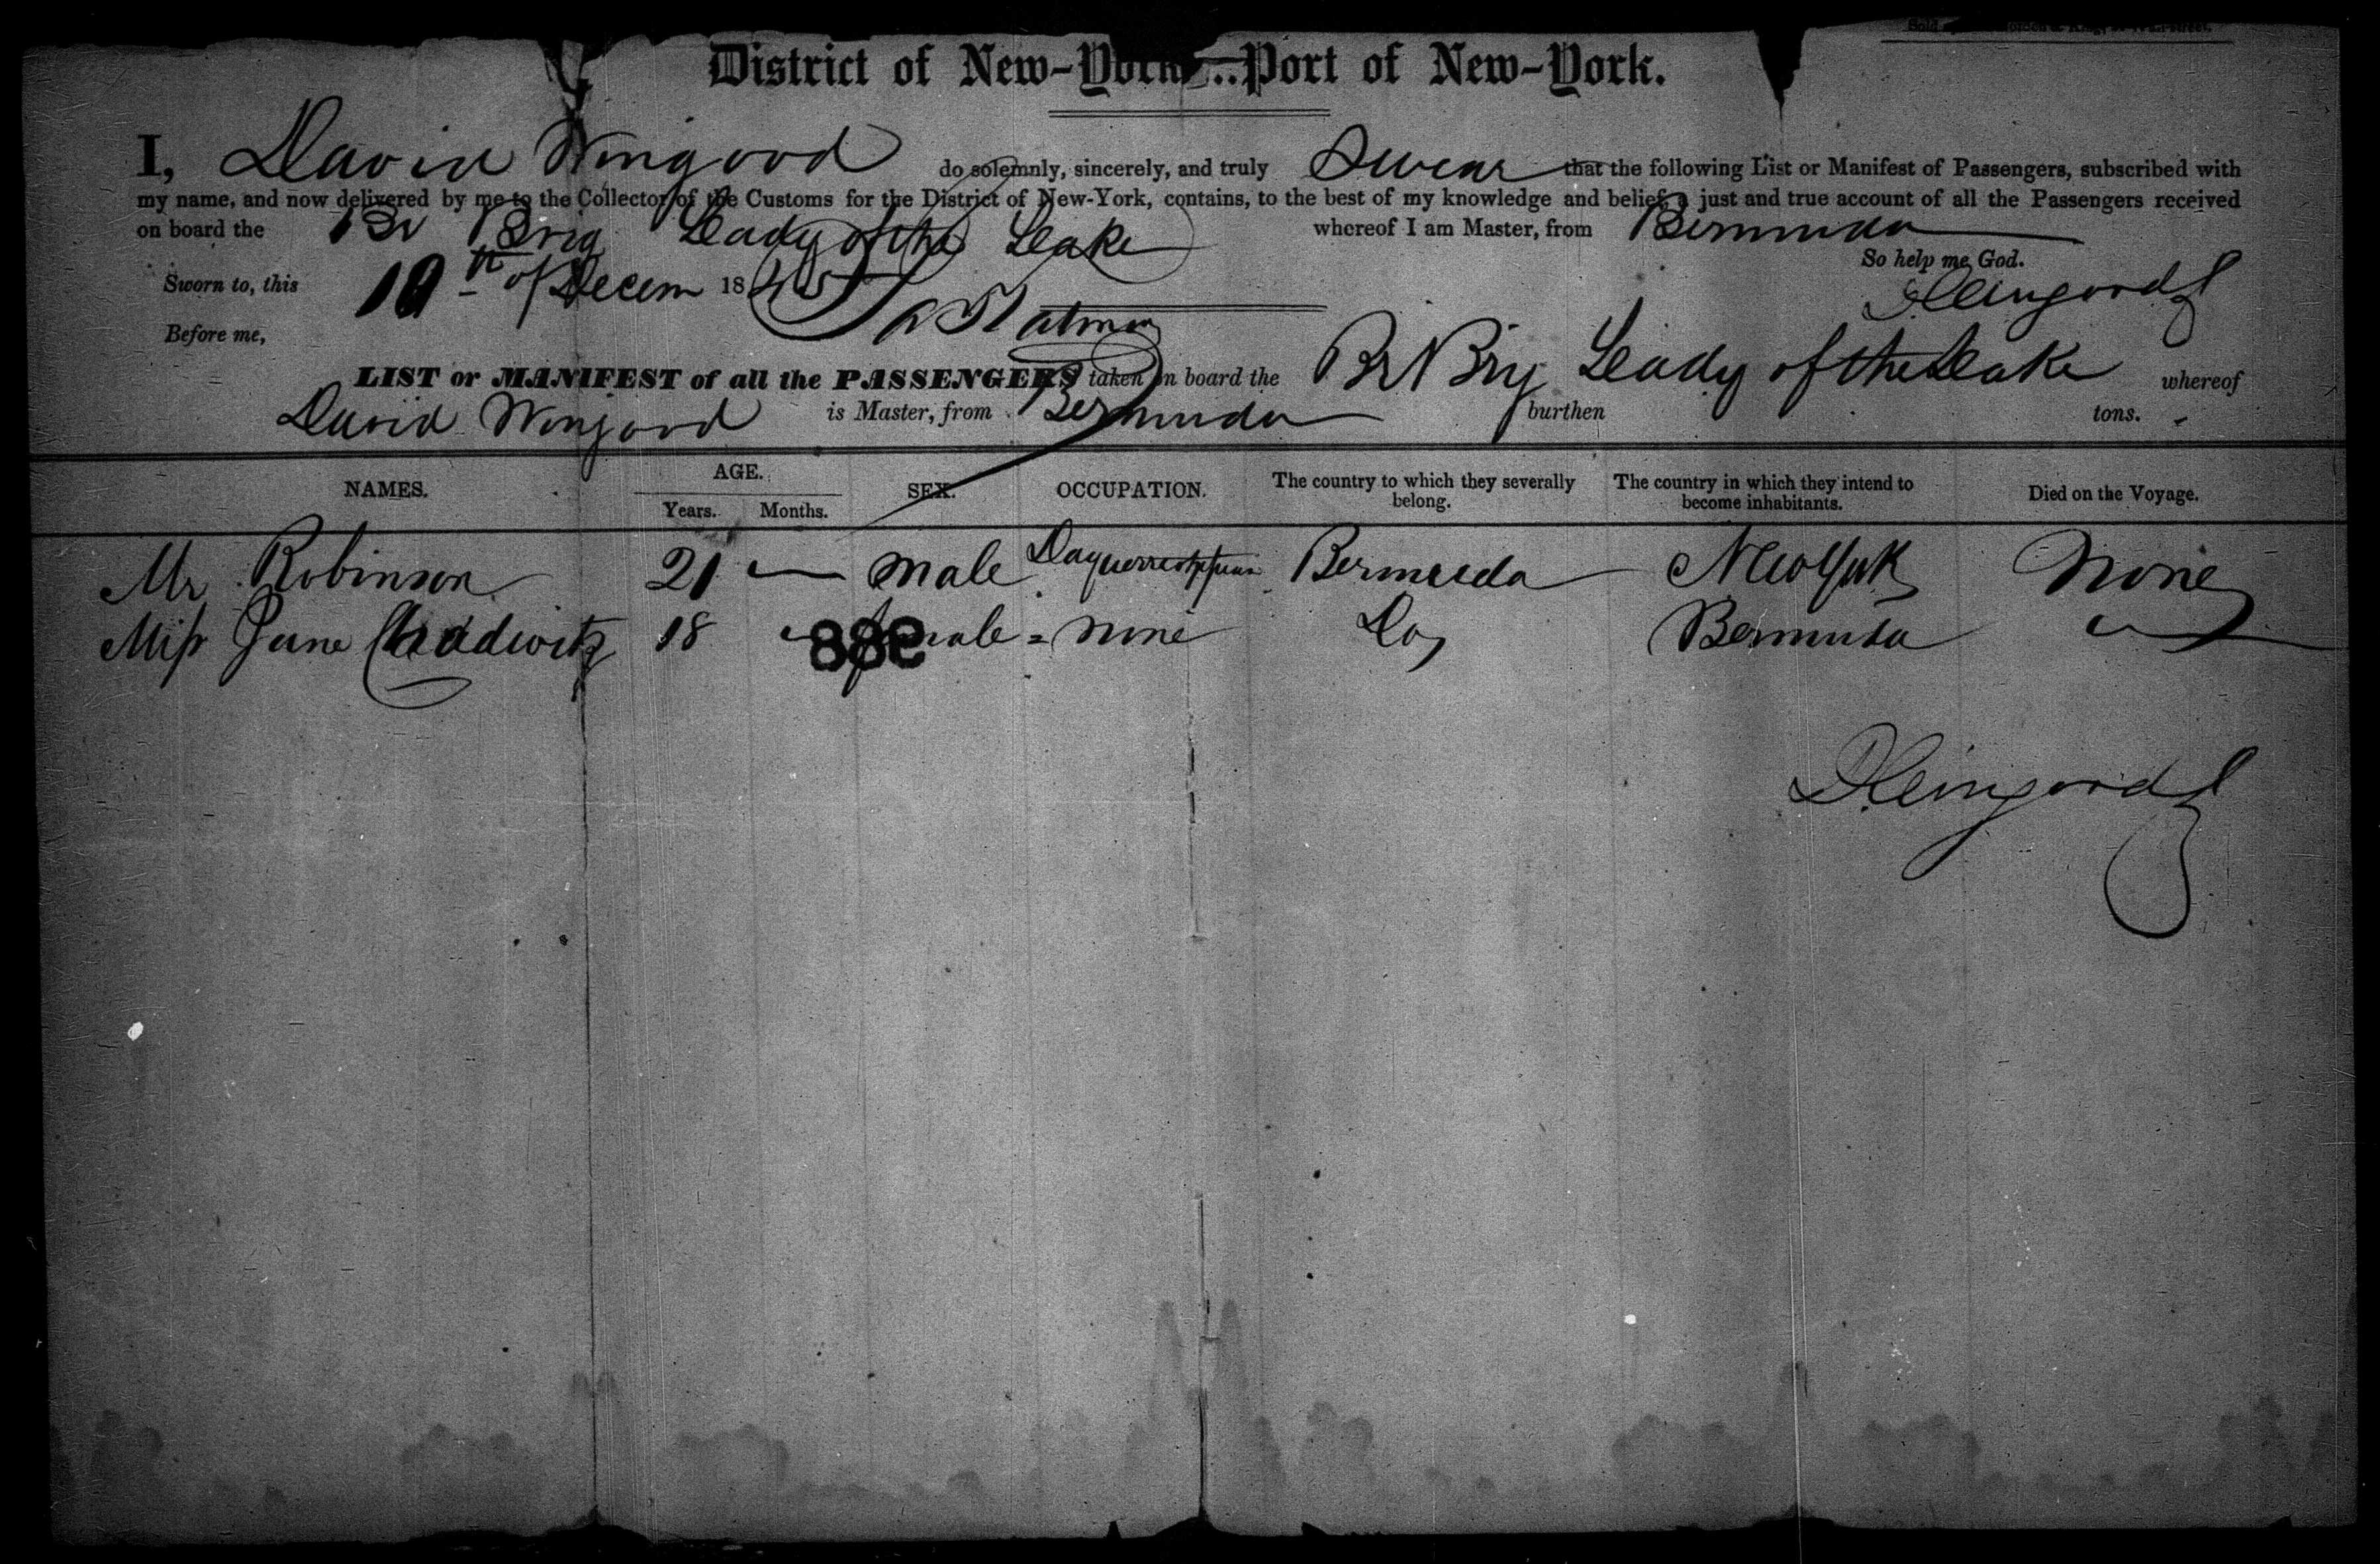 District of New-York...Port of New-York.
I, David Wingood do solemnly, sincerely, and truly Swear that the following List or Manifest of Passengers, subscribed with
my name, and now delivered by me to the Collector of the Customs for the District of New-York, contains, to the best of my knowledge and belief, a just and true account of all the Passengers received
on board the Br Brig Lady of the Lake whereof I am Master, from Bermuda
So help me God.
Sworn to, this 10th of Decem 1845 DWingood
Before me,
LIST or MANIFEST of all the PASSENGERS taken on board the Br Brig Lady of the Lake whereof
David Wingood is Master, from Bermuda burthen tons.
NAMES. AGE. Years. Months. SEX. OCCUPATION. The country to which they severally belong. The country in which they intend to become inhabitants. Died on the Voyage.
Mr Robinson 21 male Bermuda New York None
Miss Jane 18 female = none Do Bermuda
888
DWingood